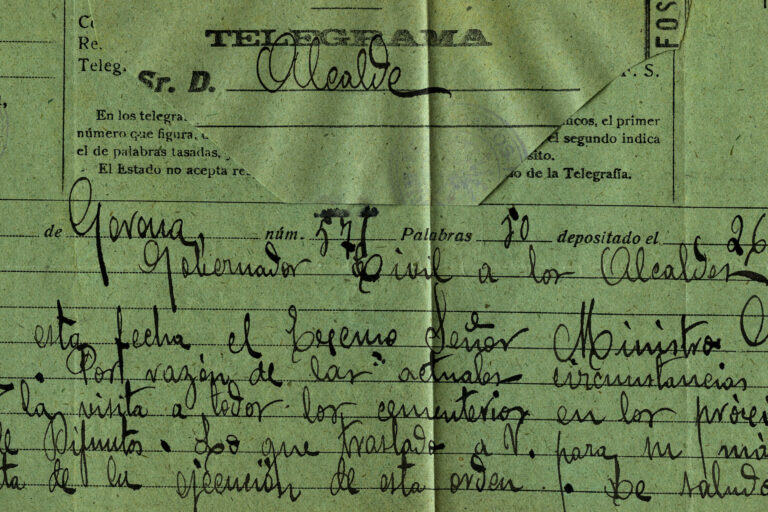 TELEGRAMA
FOS
Re.
Teleg.
Sr. D. Alcalde
En los telegra icos, el primer
número que figura, el segundo indica
el de palabras tasadas, sito.
El Estado no acepta re o de la Telegrafía.
de Gerona núm. 571 Palabras 50 depositado el 26
Gobernador Civil a los Alcaldes
esta fecha el Excmo Señor Ministro
. Por razón de las actuales circunstancias
la visita a todos los cementerios en los próxi
de Difuntos. Lo que traslado a V. para su má
ta de la ejecución de esta orden. Le saludo